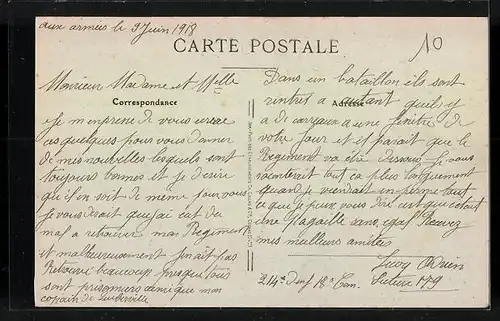 aux armées le 9 Juin 1918
10
CARTE POSTALE
Correspondance
Adresse
Monsieur Madame et Melle
Je m'enprene de vous écrire
ces quelques pour vous donner
de mes nouvelles lesquels sont
toujours bonnes et je désire
qu'il en soit de meme pour vous
je vous dirait que j'ai eut du
mal a retrouver mon Regiment
et malheureusement j'nait pas
Retrouvé beaucoup presque tous
sont prisonniers ainsi que mon
copain de Luneville
Dans un bataillon ils sont
rentres a autant quel y
a de carreaux a une fenêtre de
votre four et il parait que le
Regiment va etre dissous Je vous
raconterait tout ca plus longuement
quand je viendrait en perme tout
ce que je peux vous dire est que cetait
une pagaille sans egal Recevez
mes meilleurs amities
214e Inf 18e Con. Secteur 179